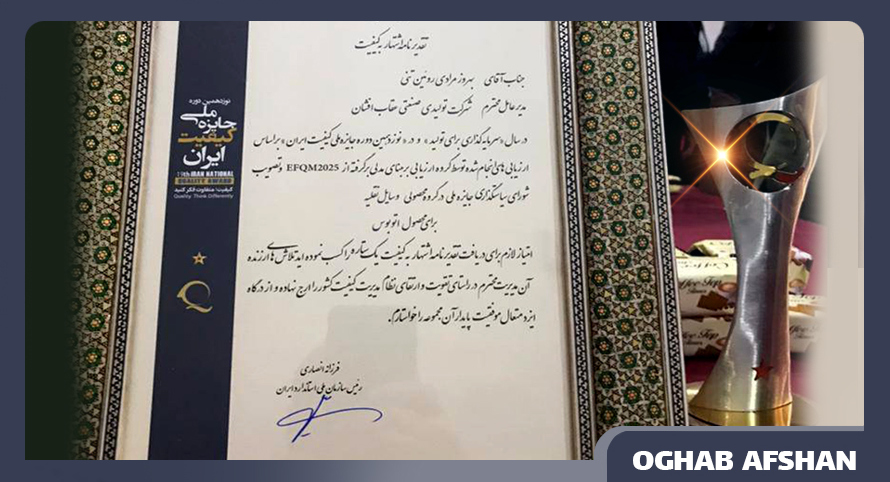 تقدیرنامه اشتهار به کیفیت
جناب آقای بهروز مرادی روئین تنی
مدیرعامل محترم شرکت تولیدی صنعتی عقاب افشان
در سال «سرمایه‌گذاری برای تولید» و در «نوزدهمین دوره جایزه ملی کیفیت ایران» براساس
ارزیابی‌های انجام شده توسط گروه ارزیابی بر مبنای مدلی برگرفته از EFQM2025 و تصویب
شورای سیاستگذاری جایزه ملی در گروه محصولی وسایل نقلیه
برای محصول اتوبوس
امتیاز لازم برای دریافت تقدیرنامه اشتهار به کیفیت یک ستاره را کسب نموده‌اید تلاش‌های ارزنده
آن مدیریت محترم در راستای تقویت و ارتقای نظام مدیریت کیفیت کشور را ارج نهاده و از درگاه
ایزد متعال موفقیت پایدار آن مجموعه را خواستارم.
فرزانه انصاری
رئیس سازمان ملی استاندارد ایران
نوزدهمین دوره
جایزه ملی
کیفیت
ایران
19th IRAN NATIONAL
QUALITY AWARD
کیفیت؛ متفاوت فکر کنید
Quality: Think Differently
OGHAB AFSHAN